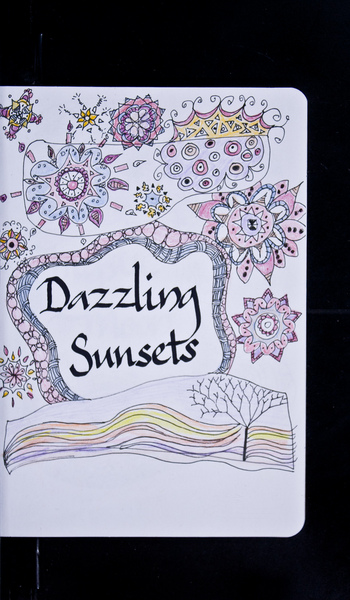 Dazzling
Sunsets